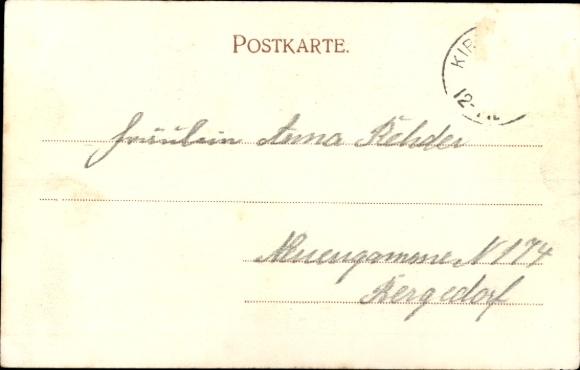 POSTKARTE.
KIR
12-
Fräulein Anna Rehder
Neuengamme N 174
Bergedorf